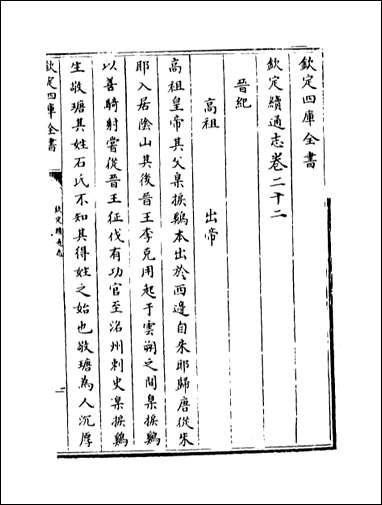 欽定四庫全書
欽定續通志卷二十二
晉紀
高祖 出帝
高祖皇帝其父臬捩鷄本出於西邊自朱耶歸唐從朱
耶入居陰山其後晉王李克用起于雲朔之間臬捩鷄
以善騎射嘗從晉王征伐有功官至洺州刺史臬捩鷄
生敬瑭其姓石氏不知其得姓之始也敬瑭為人沉厚
欽定四庫全書
欽定續通志